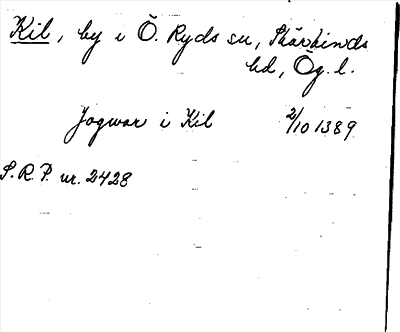 Kil, by i Ö. Ryds sn, Skärkinds
hd, Ög. l.
Jogwar i Kil 2/10 1389
S.R.P. nr. 2428